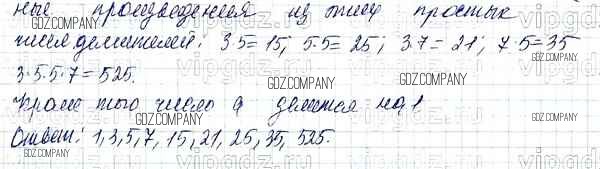 ные произведения из этих простых
чисел делителей: 3·5=15, 5·5=25; 3·7=21; 7·5=35
3·5·5·7=525.
Кроме того число a делится на 1
Ответ: 1,3,5,7, 15, 21, 25, 35, 525.
GDZ.COMPANY
GDZ.COMPANY
GDZ.COMPANY
GDZ.COMPANY
GDZ.COMPANY
GDZ.COMPANY
GDZ.COMPANY
vipgdz.ru